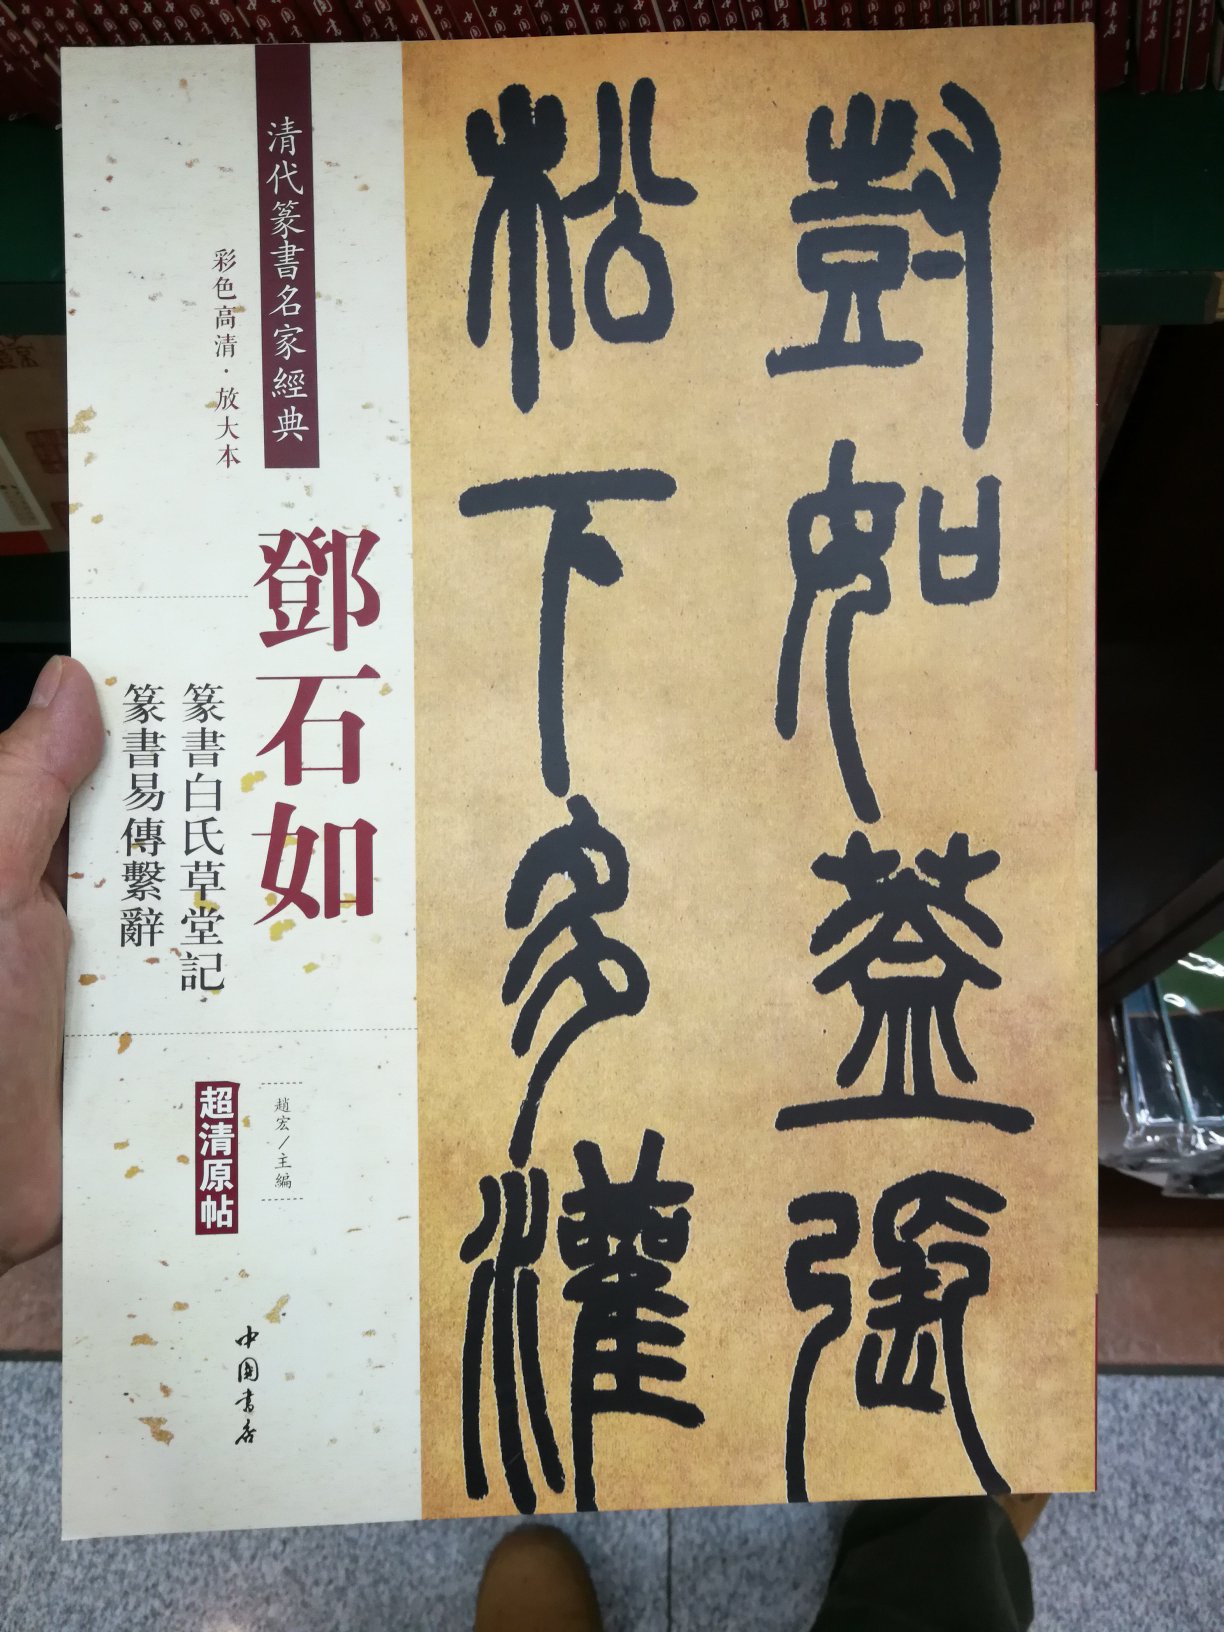 尌如蓋張
松下多灌
清代篆書名家經典
彩色高清·放大本
鄧石如
篆書白氏草堂記
篆書易傳繫辭
趙宏/主編
超清原帖
中國書店